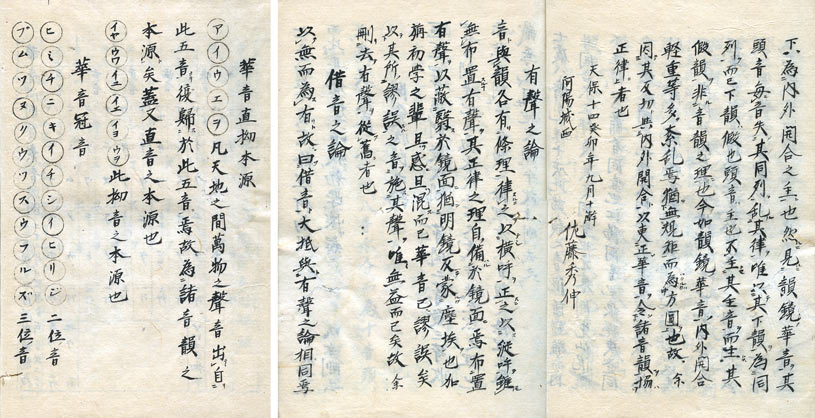 下、為内外開合之主也、然見韻鏡華音、其
頭音毎音失其同列、乱其律、唯以其下韻為同
列而已、下韻仮也、頭音主也、不主其主音、而主其
仮韻、非音韻之理也、今如韻鏡華音、内外開合
軽重等多紊乱焉、猶無規矩而為方圓也、故余
因其反切與内外開合、以更正華音、令諸音韻揚
正律者也
天保十四癸卯年九月十
阿陽城西 佐藤秀仲
有聲之論
音與韻各有條理、律之以横呼、正之以縱呼、雖
無布置有聲、其正律之理自備於鏡面焉、布置
有聲、以蔽翳於鏡面、猶明鏡及蒙塵埃也、加
旃初學之輩、且惑且混而已、華音已謬誤矣
以其所謬誤之音、施其聲、唯無益而已矣、故余
刪去有聲、從舊者也
借音之論
以無而為有、故曰借音、大抵與有聲之論相同焉
華音直拗本源
アイウエヲ 凡天地之間萬物之聲音出自
此五音、復歸於此五音焉、故為諸音韻之
本源矣、蓋又直音之本源也
イヤウワイユイエイヨウヲ 此拗音之本源也
華音冠音
ヒミチニキイチシイヒリジ 二位音
プムツヌクウツスウフルズ 三位音